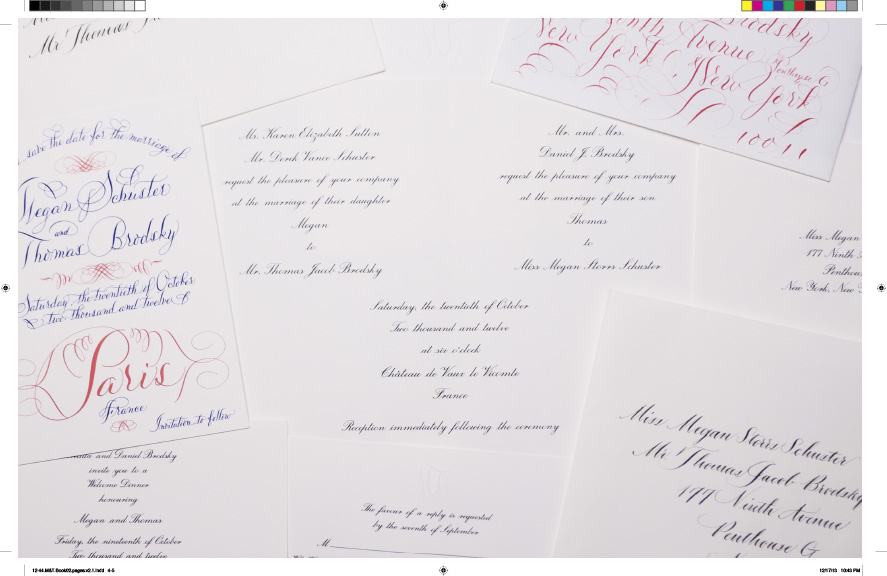 Mr. Thomas
save the date for the marriage of
Megan Schuster
and
Thomas Brodsky
Saturday, the twentieth of October
two thousand and twelve
Paris
France
Invitation to follow
Ms. Karen Elizabeth Sutton
Mr. Derek Vance Schuster
request the pleasure of your company
at the marriage of their daughter
Megan
to
Mr. Thomas Jacob Brodsky
Mr. and Mrs.
Daniel J. Brodsky
request the pleasure of your company
at the marriage of their son
Thomas
to
Miss Megan Storrs Schuster
Saturday, the twentieth of October
Two thousand and twelve
at six o'clock
Château de Vaux le Vicomte
France
Reception immediately following the ceremony
Brodsky
Ninth Avenue
New York Penthouse G
New York
10011
Miss Megan
177 Ninth
Penthou
New York, New
and Daniel Brodsky
invite you to a
Welcome Dinner
honouring
Megan and Thomas
Friday, the nineteenth of October
Two thousand and twelve
The favour of a reply is requested
by the seventh of September
M
Miss Megan Storrs Schuster
Mr Thomas Jacob Brodsky
177 Ninth Avenue
Penthouse G
12-44.M&T.Book02.pages.v2.1.indd 4-5
12/17/13 10:43 PM